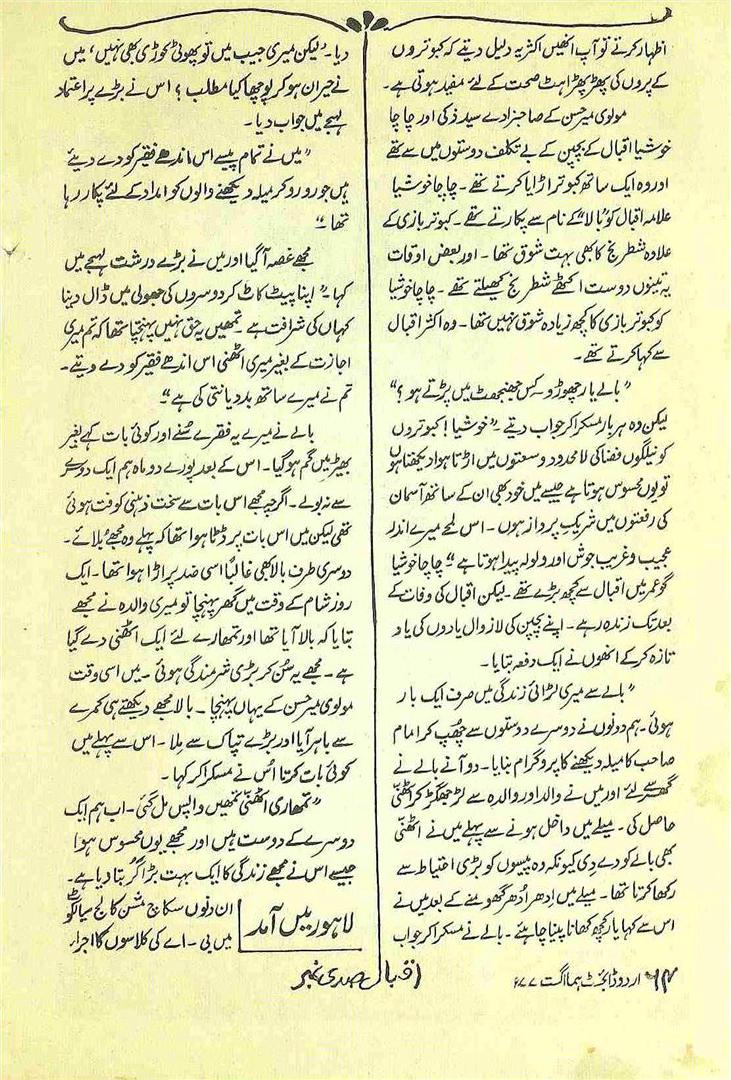 اظہار کرتے تو آپ انھیں اکثر یہ دلیل دیتے کہ کبوتروں
کے پروں کی پھڑپھڑاہٹ صحت کے لئے مفید ہوتی ہے۔
مولوی میر حسن کے صاحبزادے سید ذکی اور چاچا
خوشیا اقبال کے بچپن کے بے تکلف دوستوں میں سے تھے
اور وہ ایک ساتھ کبوتر اڑایا کرتے تھے۔ چاچا خوشیا
علامہ اقبال کو "بالا" کے نام سے پکارتے تھے۔ کبوتر بازی کے
علاوہ شطرنج کا بھی بہت شوق تھا۔ اور بعض اوقات
یہ تینوں دوست اکھٹے شطرنج کھیلتے تھے۔ چاچا خوشیا
کو کبوتر بازی کا کچھ زیادہ شوق نہیں تھا۔ وہ اکثر اقبال
سے کہا کرتے تھے۔
"بالے یار چھوڑو۔ کس جھنجھٹ میں پڑتے ہو؟"
لیکن وہ ہر بار مسکرا کر جواب دیتے۔ "خوشیا! کبوتروں
کو نیلگوں فضا کی لامحدود وسعتوں میں اڑتا ہوا دیکھتا ہوں
تو یوں محسوس ہوتا ہے جیسے میں خود بھی ان کے ساتھ آسمان
کی رفعتوں میں شریک پرواز ہوں۔ اس لمحے میرے اندر
عجیب و غریب جوش اور ولولہ پیدا ہوتا ہے"۔ چاچا خوشیا
گو عمر میں اقبال سے کچھ بڑے تھے۔ لیکن اقبال کی وفات کے
بعد تک زندہ رہے۔ اپنے بچپن کی لازوال یادوں کی یاد
تازہ کر کے انھوں نے ایک دفعہ بتایا۔
"بالے سے میری لڑائی زندگی میں صرف ایک بار
ہوئی۔ ہم دونوں نے دوسرے دوستوں سے چھپ کر امام
صاحب کا میلہ دیکھنے کا پروگرام بنایا۔ دو آنے بالے نے
گھر سے لئے اور میں نے والد اور والدہ سے لڑ جھگڑ کر اٹھنّی
حاصل کی۔ میلے میں داخل ہونے سے پہلے میں نے اٹھنّی
بھی بالے کو دے دی کیونکہ وہ پیسوں کو بڑی احتیاط سے
رکھا کرتا تھا۔ میلے میں اِدھر اُدھر گھومنے کے بعد میں نے
اس سے کہا یار کچھ کھانا پینا چاہیئے۔ بالے نے مسکرا کر جواب
دیا۔ "لیکن میری جیب میں تو پھوٹی کوڑی بھی نہیں" میں
نے حیران ہو کر پوچھا کیا مطلب؟ اس نے بڑے پر اعتماد
لہجے میں جواب دیا۔
"میں نے تمام پیسے اس اندھے فقیر کو دے دیئے
ہیں جو رو رو کر میلہ دیکھنے والوں کو امداد کے لئے پکار رہا
تھا"۔
مجھے غصہ آ گیا اور میں نے بڑے درشت لہجے میں
کہا۔ "اپنا پیٹ کاٹ کر دوسروں کی جھولی میں ڈال دینا
کہاں کی شرافت ہے۔ تمھیں یہ حق نہیں پہنچتا تھا کہ تم میری
اجازت کے بغیر میری اٹھنی اس اندھے فقیر کو دے دیتے۔
تم نے میرے ساتھ بد دیانتی کی ہے"۔
بالے نے میرے یہ فقرے سُنے اور کوئی بات کہے بغیر
بھیڑ میں گم ہو گیا۔ اس کے بعد پورے دو ماہ ہم ایک دوسرے
سے نہ بولے۔ اگرچہ مجھے اس بات سے سخت ذہنی کوفت ہوئی
تھی لیکن میں اس بات پر ڈٹا ہوا تھا کہ پہلے وہ مجھے بُلائے۔
دوسری طرف بالا بھی غالباً اسی ضد پر اڑا ہوا تھا۔ ایک
روز شام کے وقت میں گھر پہنچا تو میری والدہ نے مجھے
بتایا کہ بالا آیا تھا اور تمھارے لئے ایک اٹھنی دے گیا
ہے۔ مجھے یہ سُن کر بڑی شرمندگی ہوئی۔ میں اسی وقت
مولوی میر حسن کے یہاں پہنچا۔ بالا مجھے دیکھتے ہی کمرے
سے باہر آیا اور بڑے تپاک سے ملا۔ اس سے پہلے میں
کوئی بات کرتا اُس نے مسکرا کر کہا۔
"تمھاری اٹھنّی تمھیں واپس مل گئی۔ اب ہم ایک
دوسرے کے دوست ہیں اور مجھے یوں محسوس ہوا
جیسے اس نے مجھے زندگی کا ایک بہت بڑا گُر بتا دیا ہے۔
لاہور میں آمد
ان دنوں سکاچ مشن کالج سیالکوٹ
میں بی۔ اے کی کلاسوں کا اجراء
۶۴ اردو ڈائجسٹ ہما اگست ۷۷ء
اقبال صدی نمبر